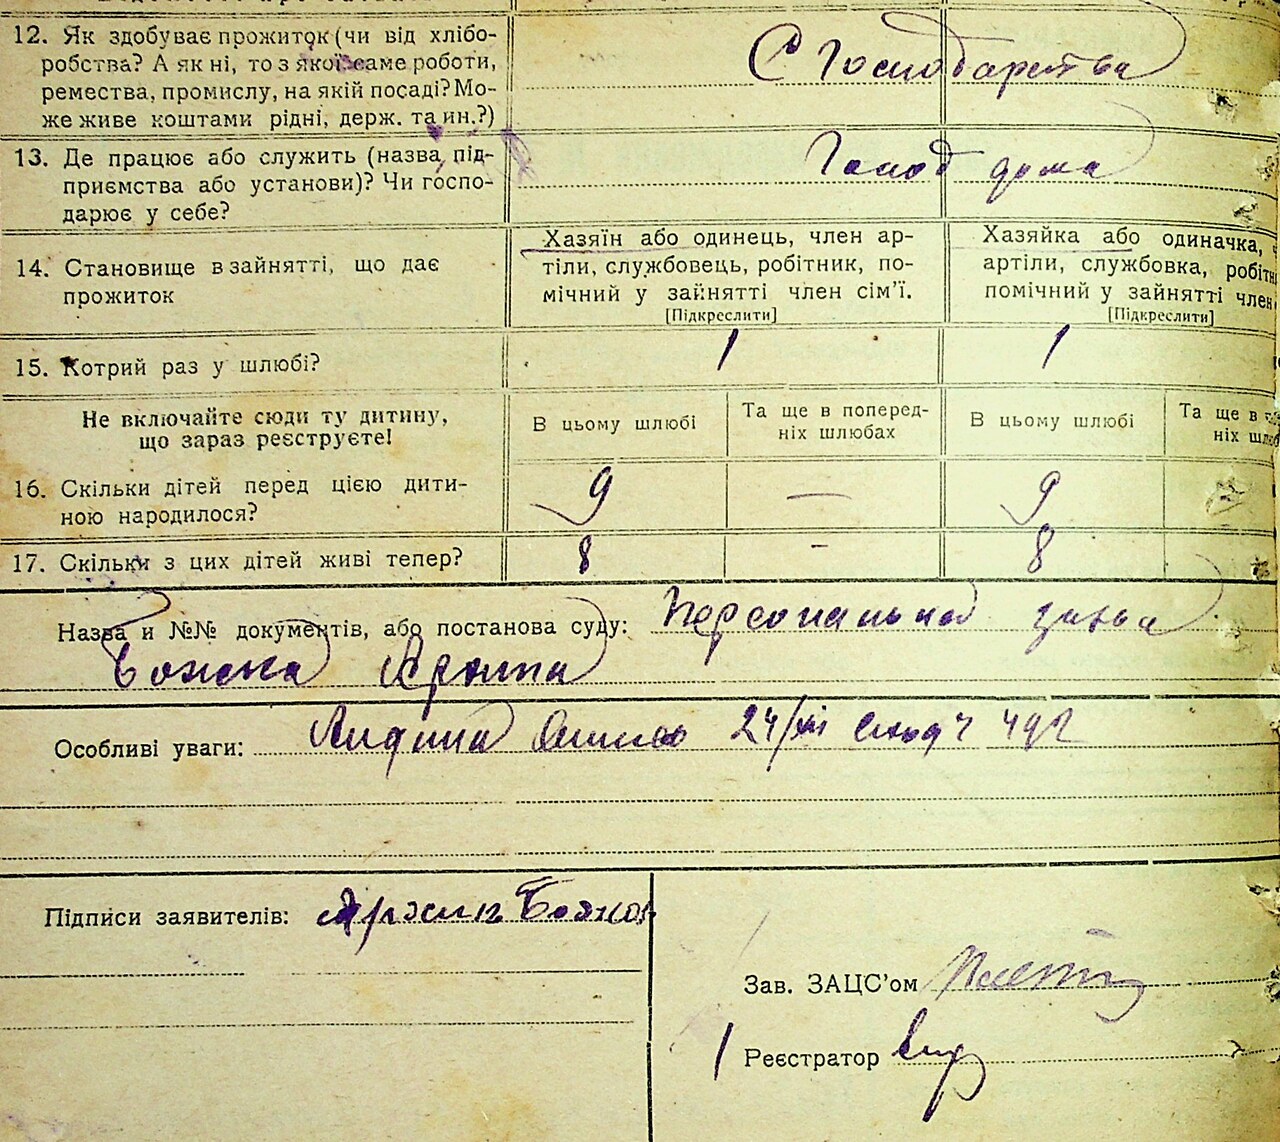 12. Як здобуває прожиток (чи від хлібо-
робства? А як ні, то з якої саме роботи,
ремества, промислу, на якій посаді? Мо-
же живе коштами рідні, держ. та ин.?)
С Господарства
13. Де працює або служить (назва під-
приємства або установи)? Чи госпо-
дарює у себе?
Господ дома
14. Становище в зайнятті, що дає
прожиток
Хазяїн або одинець, член ар-
тіли, службовець, робітник, по-
мічний у зайнятті член сім’ї.
[Підкреслити]
Хазяйка або одиначка,
артіли, службовка, робітн
помічний у зайнятті член
[Підкреслити]
15. Котрий раз у шлюбі?
1 1
Не включайте сюди ту дитину,
що зараз реєструєте!
В цьому шлюбі
Та ще в поперед-
ніх шлюбах
В цьому шлюбі
Та ще в
ніх шлю
16. Скільки дітей перед цією дити-
ною народилося?
9 — 9
17. Скільки з цих дітей живі тепер?
8 - 8
Назва и №№ документів, або постанова суду: Персональной заява
Божка
Особливі уваги: 24/
Підписи заявителів: Божко
Зав. ЗАЦС’ом
Реєстратор